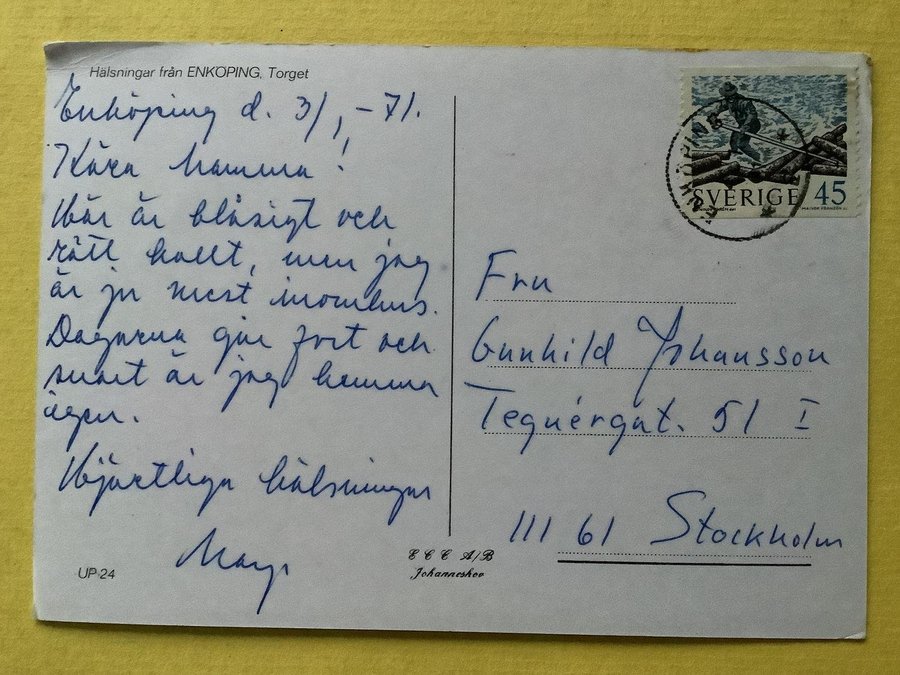 Hälsningar från ENKÖPING, Torget
Enköping d. 3/1 -71.
Kära mamma!
Här är blåsigt och
rätt kallt, men jag
är ju mest inomhus.
Dagarna går fort och
snart är jag hemma
igen.
Hjärtliga hälsningar
UP-24
ECC A/B
Johanneshov
ENKÖPING
SVERIGE 45
Fru
Gunhild Johansson
Tegnérgat. 51 I
111 61 Stockholm